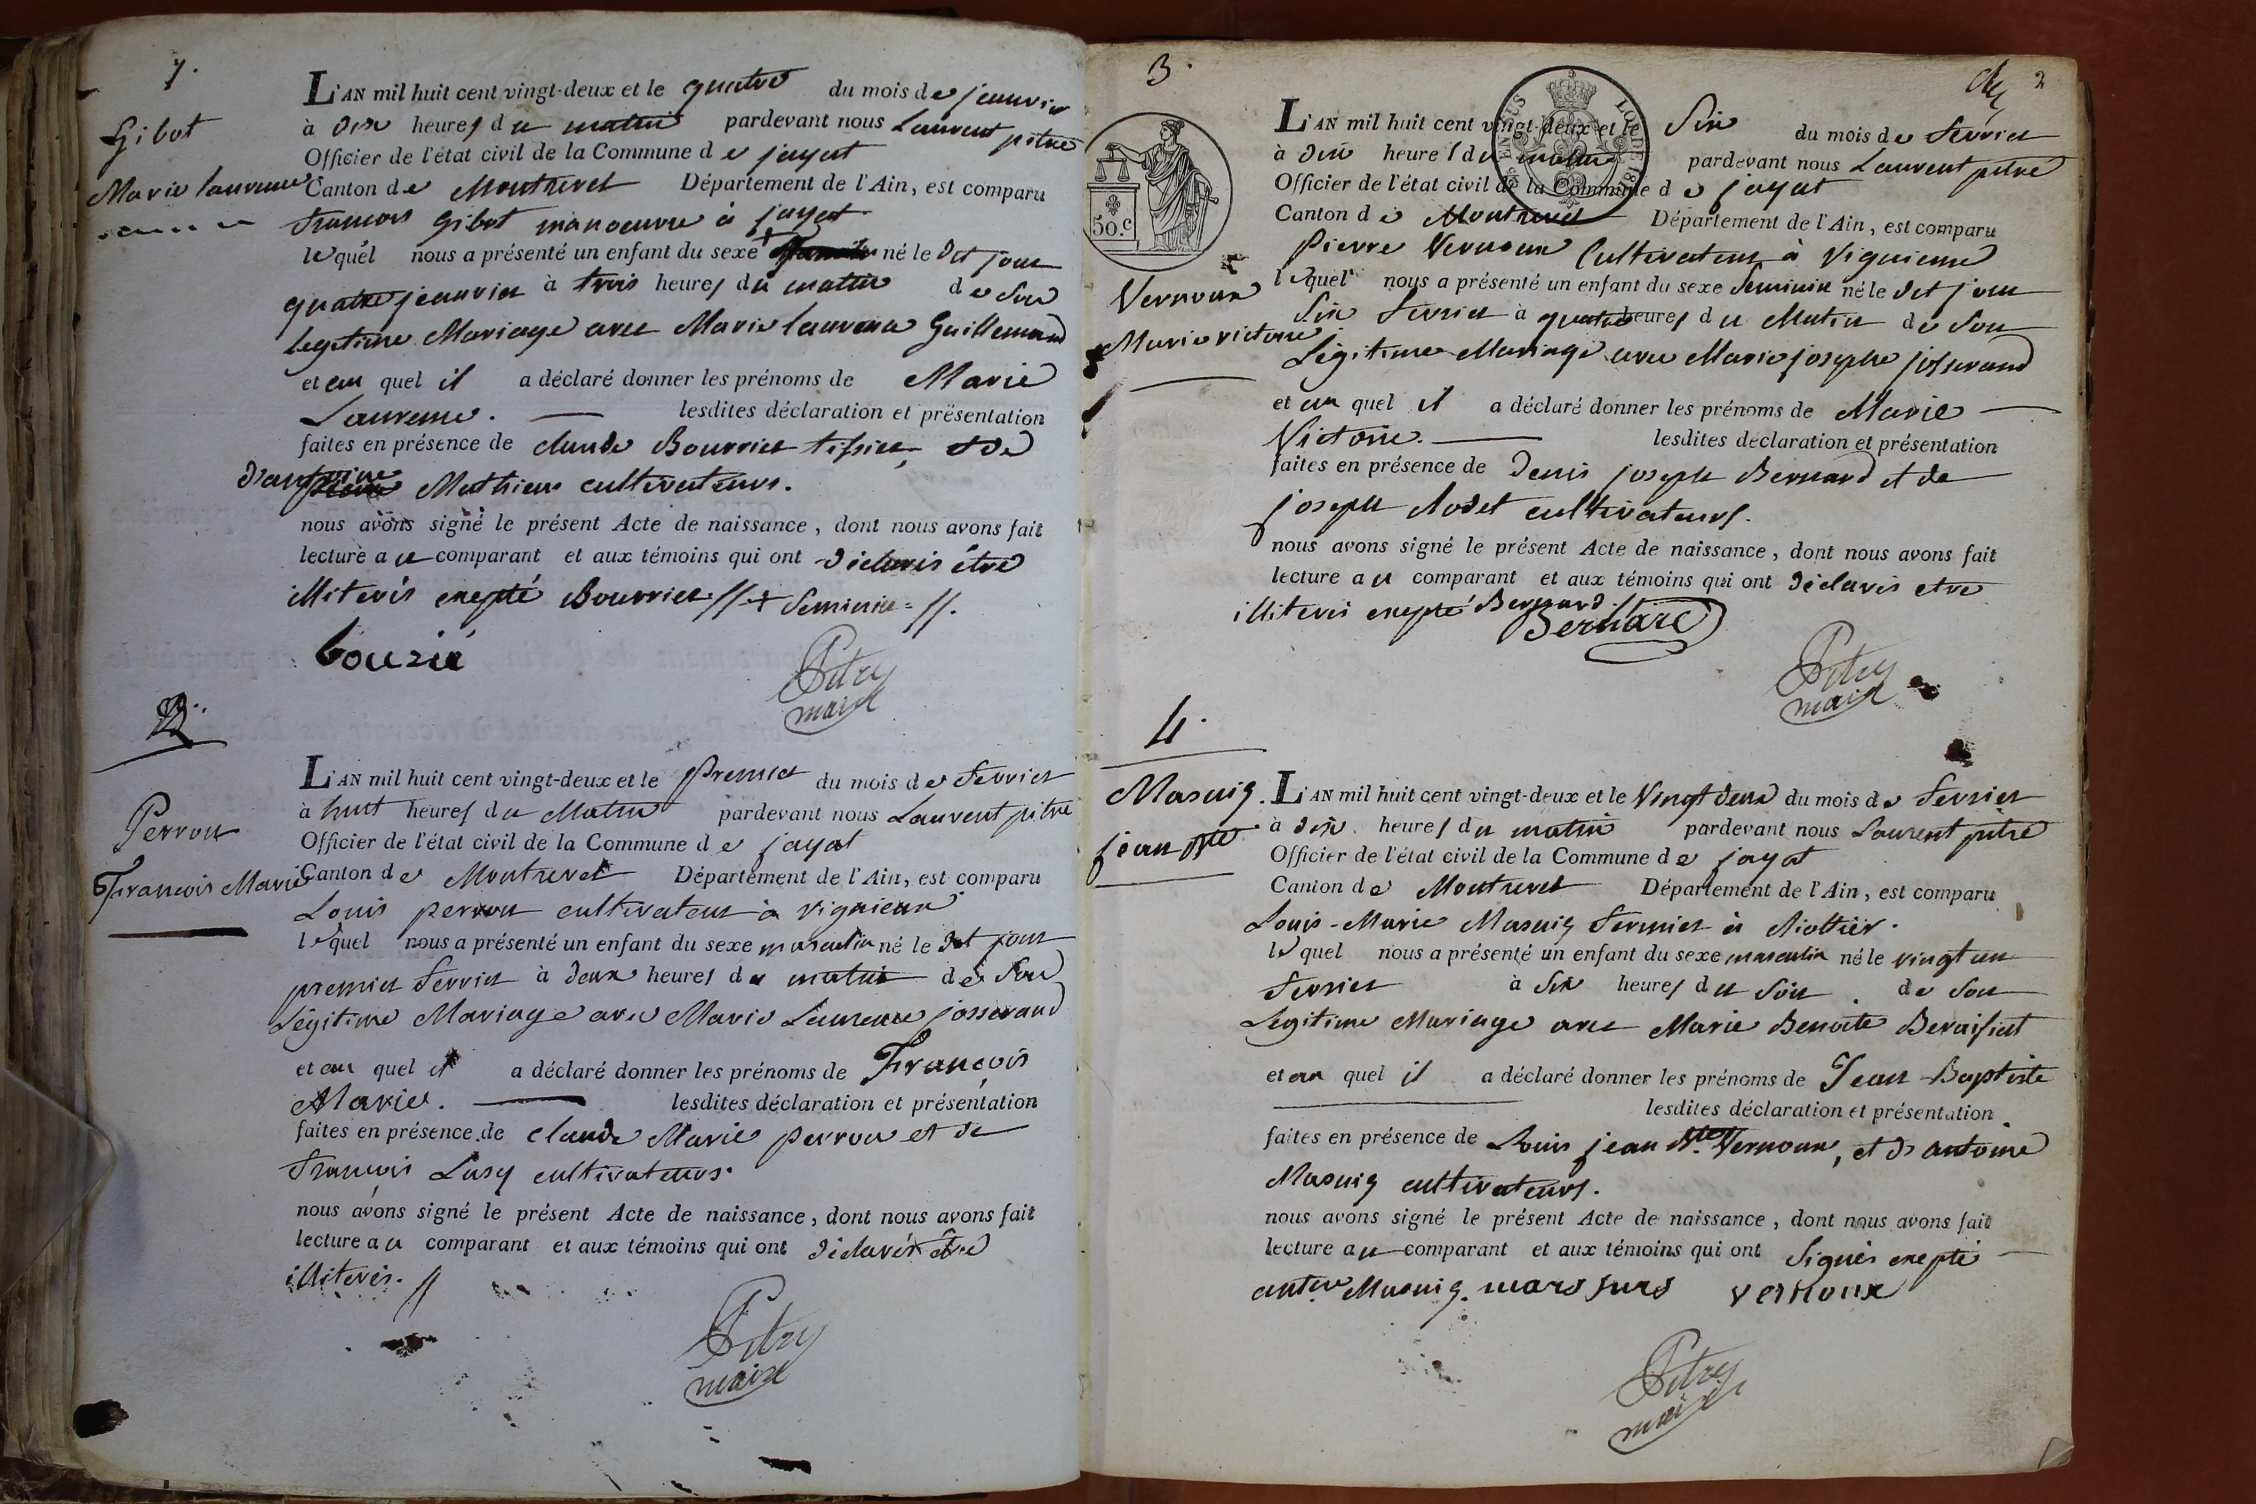 1.
Gibot
Marie laurence
L'AN mil huit cent vingt-deux et le quatre du mois de jeanvier
à dix heures du matin pardevant nous Laurent pitre
Officier de l'état civil de la Commune de jayat
Canton de Montrevel Département de l'Ain, est comparu
francois Gibot manoeuvre à jayat
lequel nous a présenté un enfant du sexe + né le dit jour
quatre jeanvier à trois heures du matin de son
legitime Mariage avec Marie laurence Guillemaud
et au quel il a déclaré donner les prénoms de Marie
Laurence. lesdites déclaration et présentation
faites en présence de claude Bourrier tissier, et de
d'antoine Mathieu cultivateurs.
nous avons signé le présent Acte de naissance, dont nous avons fait
lecture au comparant et aux témoins qui ont déclarés être
illiterés exepté Bourrier // + feminin = //.
bourié
Pitre
maire
2.
Perron
François Marie
L'AN mil huit cent vingt-deux et le Premier du mois de fevrier
à huit heures du Matin pardevant nous Laurent pitre
Officier de l'état civil de la Commune de jayat
Canton de Montrevel Département de l'Ain, est comparu
Louis perron cultivateur à vignieux
lequel nous a présenté un enfant du sexe masculin né le dit jour
premier fevrier à deux heures du matin de son
Légitime Mariage avec Marie Laurence josserand
et au quel il a déclaré donner les prénoms de François
Marie. lesdites déclaration et présentation
faites en présence de claude Marie perron et de
francois Lasy cultivateurs.
nous avons signé le présent Acte de naissance, dont nous avons fait
lecture au comparant et aux témoins qui ont déclarés être
illiterés. //
Pitre
maire
3.
2
50.c
Vernoux
Marie victoire
L'AN mil huit cent vingt-deux et le Six du mois de fevrier
à dix heures du matin pardevant nous Laurent pitre
Officier de l'état civil de la Commune de jayat
Canton de Montrevel Département de l'Ain, est comparu
Pierre Vernoux Cultivateur à Vignieux
lequel nous a présenté un enfant du sexe feminin né le dit jour
Six fevrier à quatre heures du Matin de son
Légitime Mariage avec Marie josephe josserand
et au quel il a déclaré donner les prénoms de Marie
Victoire. lesdites déclaration et présentation
faites en présence de Denis joseph Bernard et de
joseph Rodet cultivateurs.
nous avons signé le présent Acte de naissance, dont nous avons fait
lecture au comparant et aux témoins qui ont déclarés etre
illiterés exepté Bernard.
Bernard
Pitre
maire
4.
Masuig.
jean Bte
L'AN mil huit cent vingt-deux et le Vingt deux du mois de fevrier
à dix heures du matin pardevant nous Laurent pitre
Officier de l'état civil de la Commune de jayat
Canton de Montrevel Département de l'Ain, est comparu
Louis-Marie Masuig fermier à
lequel nous a présenté un enfant du sexe masculin né le vingt un
fevrier à six heures du soir de son
Légitime Mariage avec Marie Benoite
et au quel il a déclaré donner les prénoms de Jean-Baptiste
lesdites déclaration et présentation
faites en présence de Louis jean Bte. Vernoux, et d'antoine
Masuig cultivateurs.
nous avons signé le présent Acte de naissance, dont nous avons fait
lecture au comparant et aux témoins qui ont signés exepté
antne Masuig. vernoux
Pitre
maire